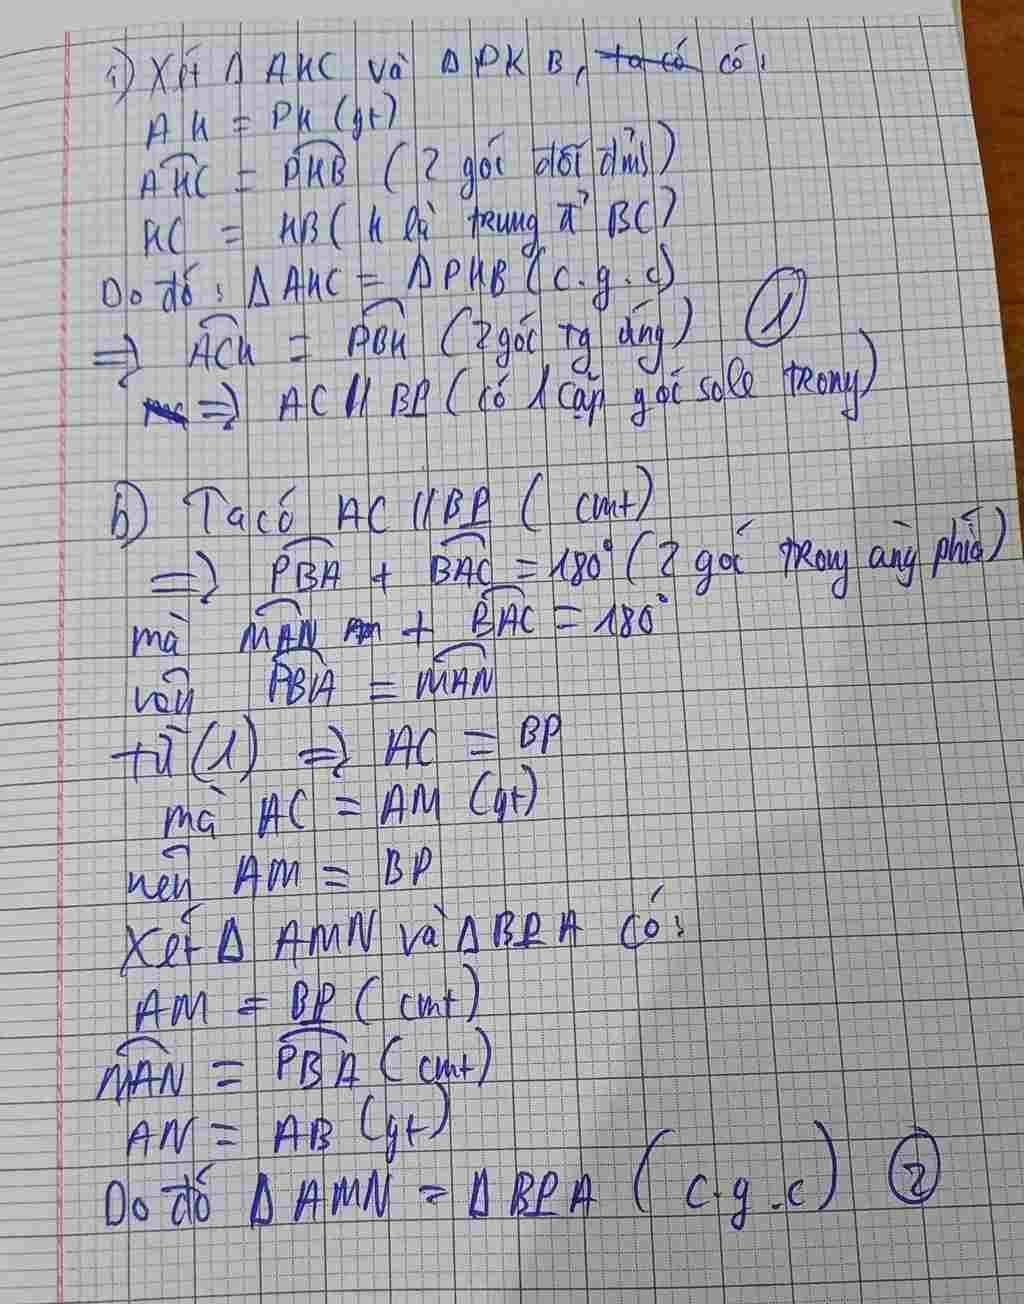 a) Xét Δ AKC và Δ PKB, ta có có:
AK = PK (gt)
AKC = PKB (2 góc đối đỉnh)
KC = KB (K là trung đ² BC)
Do đó: Δ AKC = Δ PKB (c.g.c) ①
=> ACK = PBK (2 góc tg ứng)
=> AC // BP (có 1 cặp góc sole trong)
b) Ta có AC // BP (cmt)
=> PBA + BAC = 180° (2 góc trong cùng phía)
mà MAN + BAC = 180°
vậy PBA = MAN
từ (1) => AC = BP
mà AC = AM (gt)
nên AM = BP
Xét Δ AMN và Δ BPA có:
AM = BP (cmt)
MAN = PBA (cmt)
AN = AB (gt)
Do đó Δ AMN = Δ BPA (c.g.c) ②